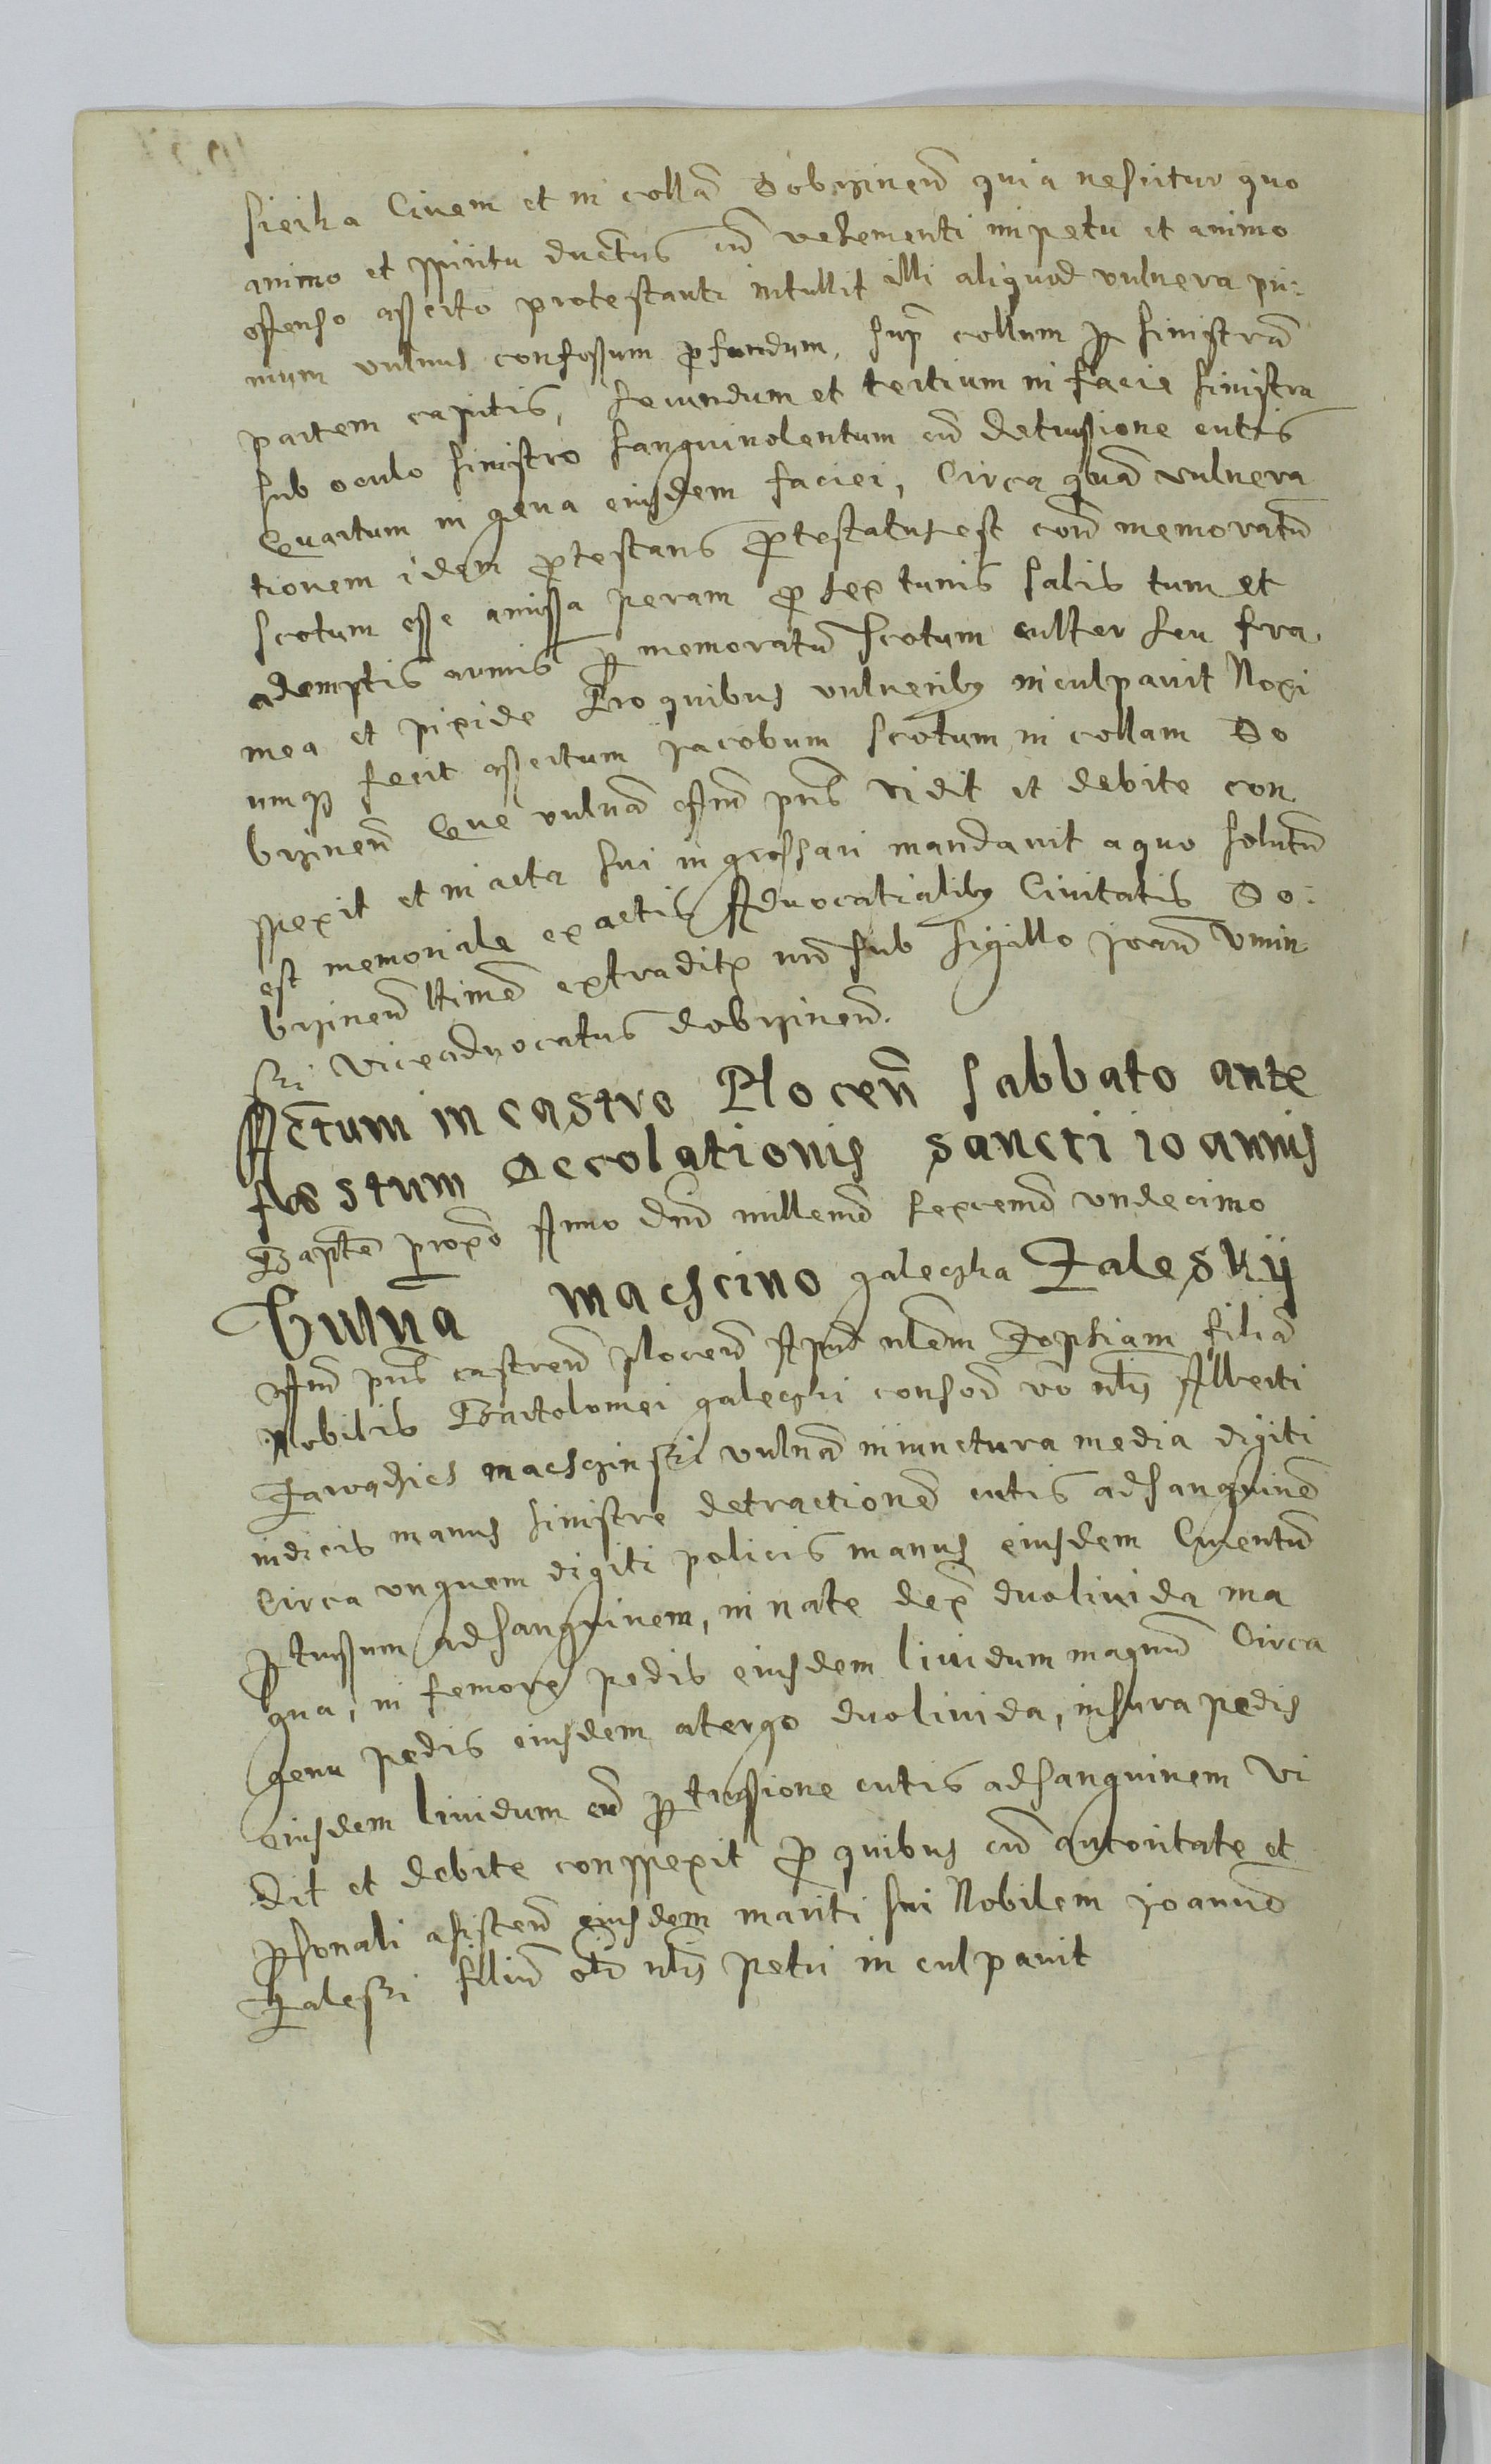 sieika Civem et in collam Dobrzinen quia nescitur quo
animo et spiritu ductus cum vehementi impetu et animo
offenso asserto protestanti intullit illi aliquod vulnera pri:
mum vulnus confossum profundum, supra collum per sinistram
partem capitis, secundum et tertium in facie sinistra
sub oculo sinistro sanguinolentum cum detusione cutis
Quartum in gena eiusdem faciei, Circa quam vulnera
tionem idem protestans protestatus est coram memoratum
scotum esse amissa peram pro sex tunis salis tum et
ademptis armis per memoratum scotum culter seu fra
mea et pixide Pro quibus vulneribus inculpavit Noxi
umque fecit assertum Jacobum scotum in collam Do
brzinen Que vulnera offm pns vidit et debite con
spexit et in acta sui ingrossari mandavit a quo solutum
est memoriale ex actis Advocatialibus Civitatis Do:
brzinen ltime extraditum sub sigillo Joan Vmin
ski viceadvocatus dobrzinen.
Actum in castro Plocen sabbato ante
festum decolationis sancti ioannis
Bapte proxo Anno dni millemo sexcemo undecimo
Vulna macscino galeczka Zaleskÿ
Offm pns castren plocen Apud nlem Zophiam filiam
Nobilis Bartolomei galeczki consor vo nlis Alberti
Zawadzics macsczinski vulna in iunctura media digiti
indicis manus sinistre detractione cutis ad sanguine
Circa unguem digiti policis manus eiusdem Cruentum
pertussum ad sanguinem, in nate dex duo livida ma
gna, in femore pedis eiusdem lividum magnum Circa
genu pedis eiusdem atergo duo livida, in sura pedis
eiusdem lividum cum pertussione cutis ad sanguinem vi
dit et debite conspexit pro quibus cum autoritate et
personali assisten eiusdem mariti sui Nobilem Joanne
Zaleski filium olim nlis petri inculpavit